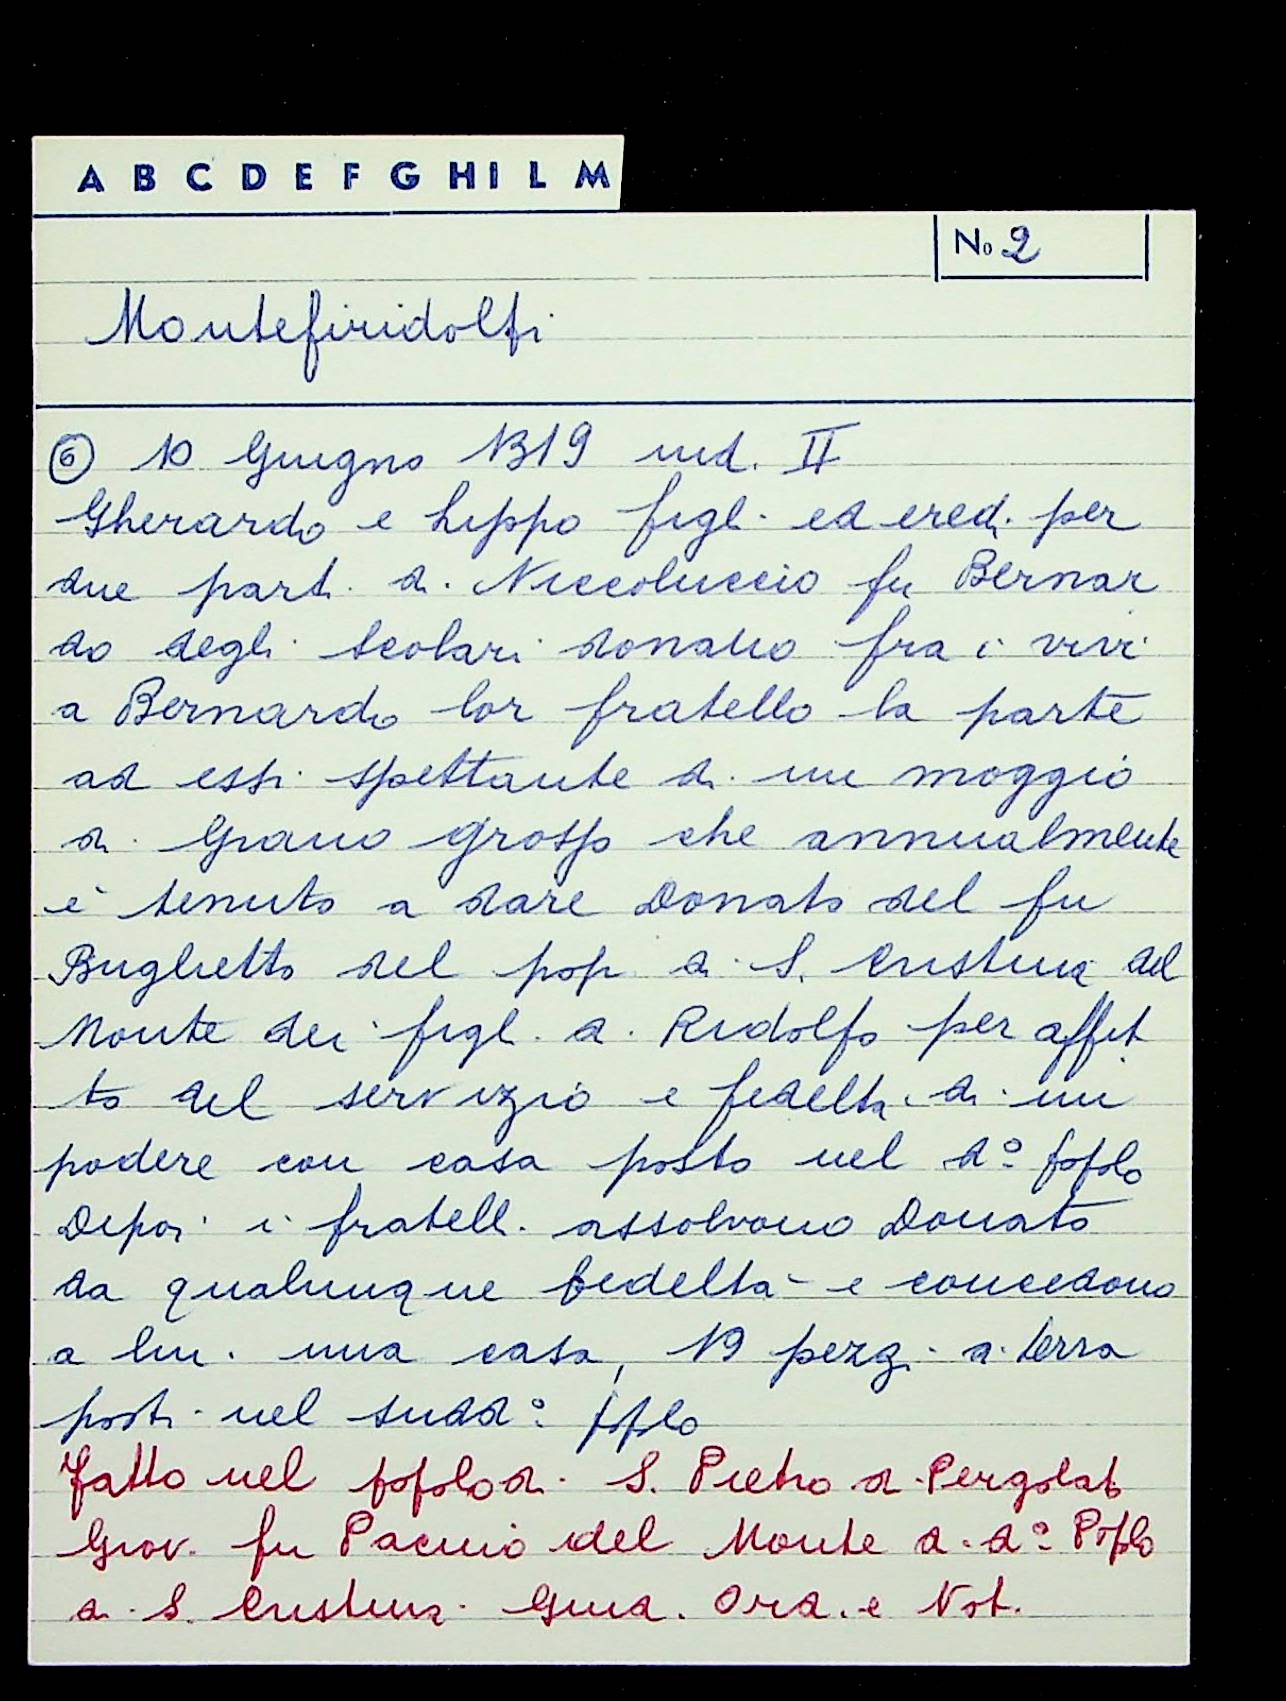 A B C D E F G H I L M
No 2
Montefiridolfi
⑥ 10 Giugno 1319 ind. II
Gherardo e Lippo figli ed eredi per
due parti di Niccoluccio fu Bernar
do degli Scolari donano fra i vivi
a Bernardo lor fratello la parte
ad essi spettante di un moggio
di Grano grosso che annualmente
è tenuto a dare Donato del fu
Buglietto del pop di S. Cristina del
Monte dei figli di Ridolfo per affit
to del servizio e fedeltà di un
podere con casa posto nel do popolo
Dipoi i fratelli assolvono Donato
da qualunque fedeltà e concedono
a lui una casa, 19 pezzi di terra
posti nel suddo popolo
Fatto nel popolo di S. Pietro a Pergolato
Giov. fu Pacino del Monte di do Popolo
di S. Cristina Giud. Ord. e Not.